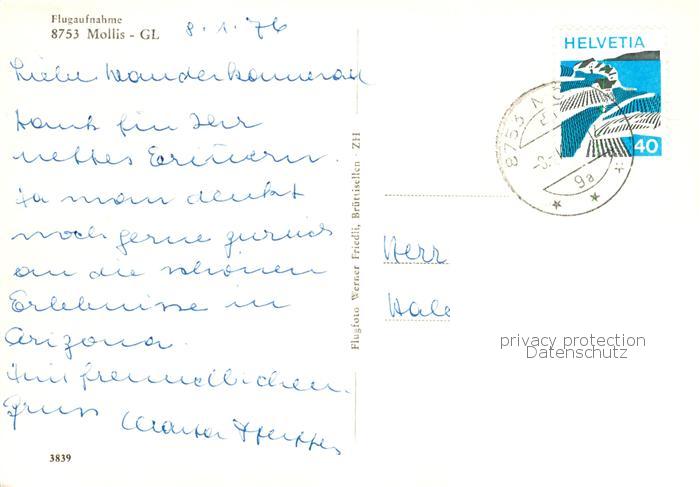 Flugaufnahme
8753 Mollis - GL
8. 1. 76
HELVETIA
40
8753
9a
Liebe Wanderkamerad
Dank für Ihr
nettes Erinnern.
Ja man denkt
noch gerne zurück
an die schönen
Erlebnisse in
Arizona.
Mit freundlichen
Gruss
Flugfoto Werner Friedli, Brüttisellen - ZH
Herr
privacy protection
Datenschutz
3839